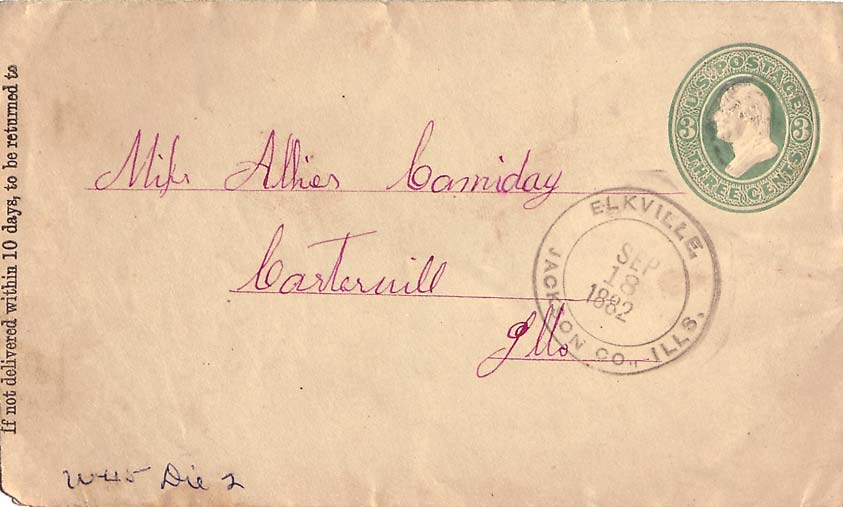 If not delivered within 10 days, to be returned to
U.S. POSTAGE
3 3
THREE CENTS
Miss Allies Camiday
Cartervill
Ills
ELKVILLE,
SEP
18
1882
JACKSON CO., ILLS.
W45 Die 2